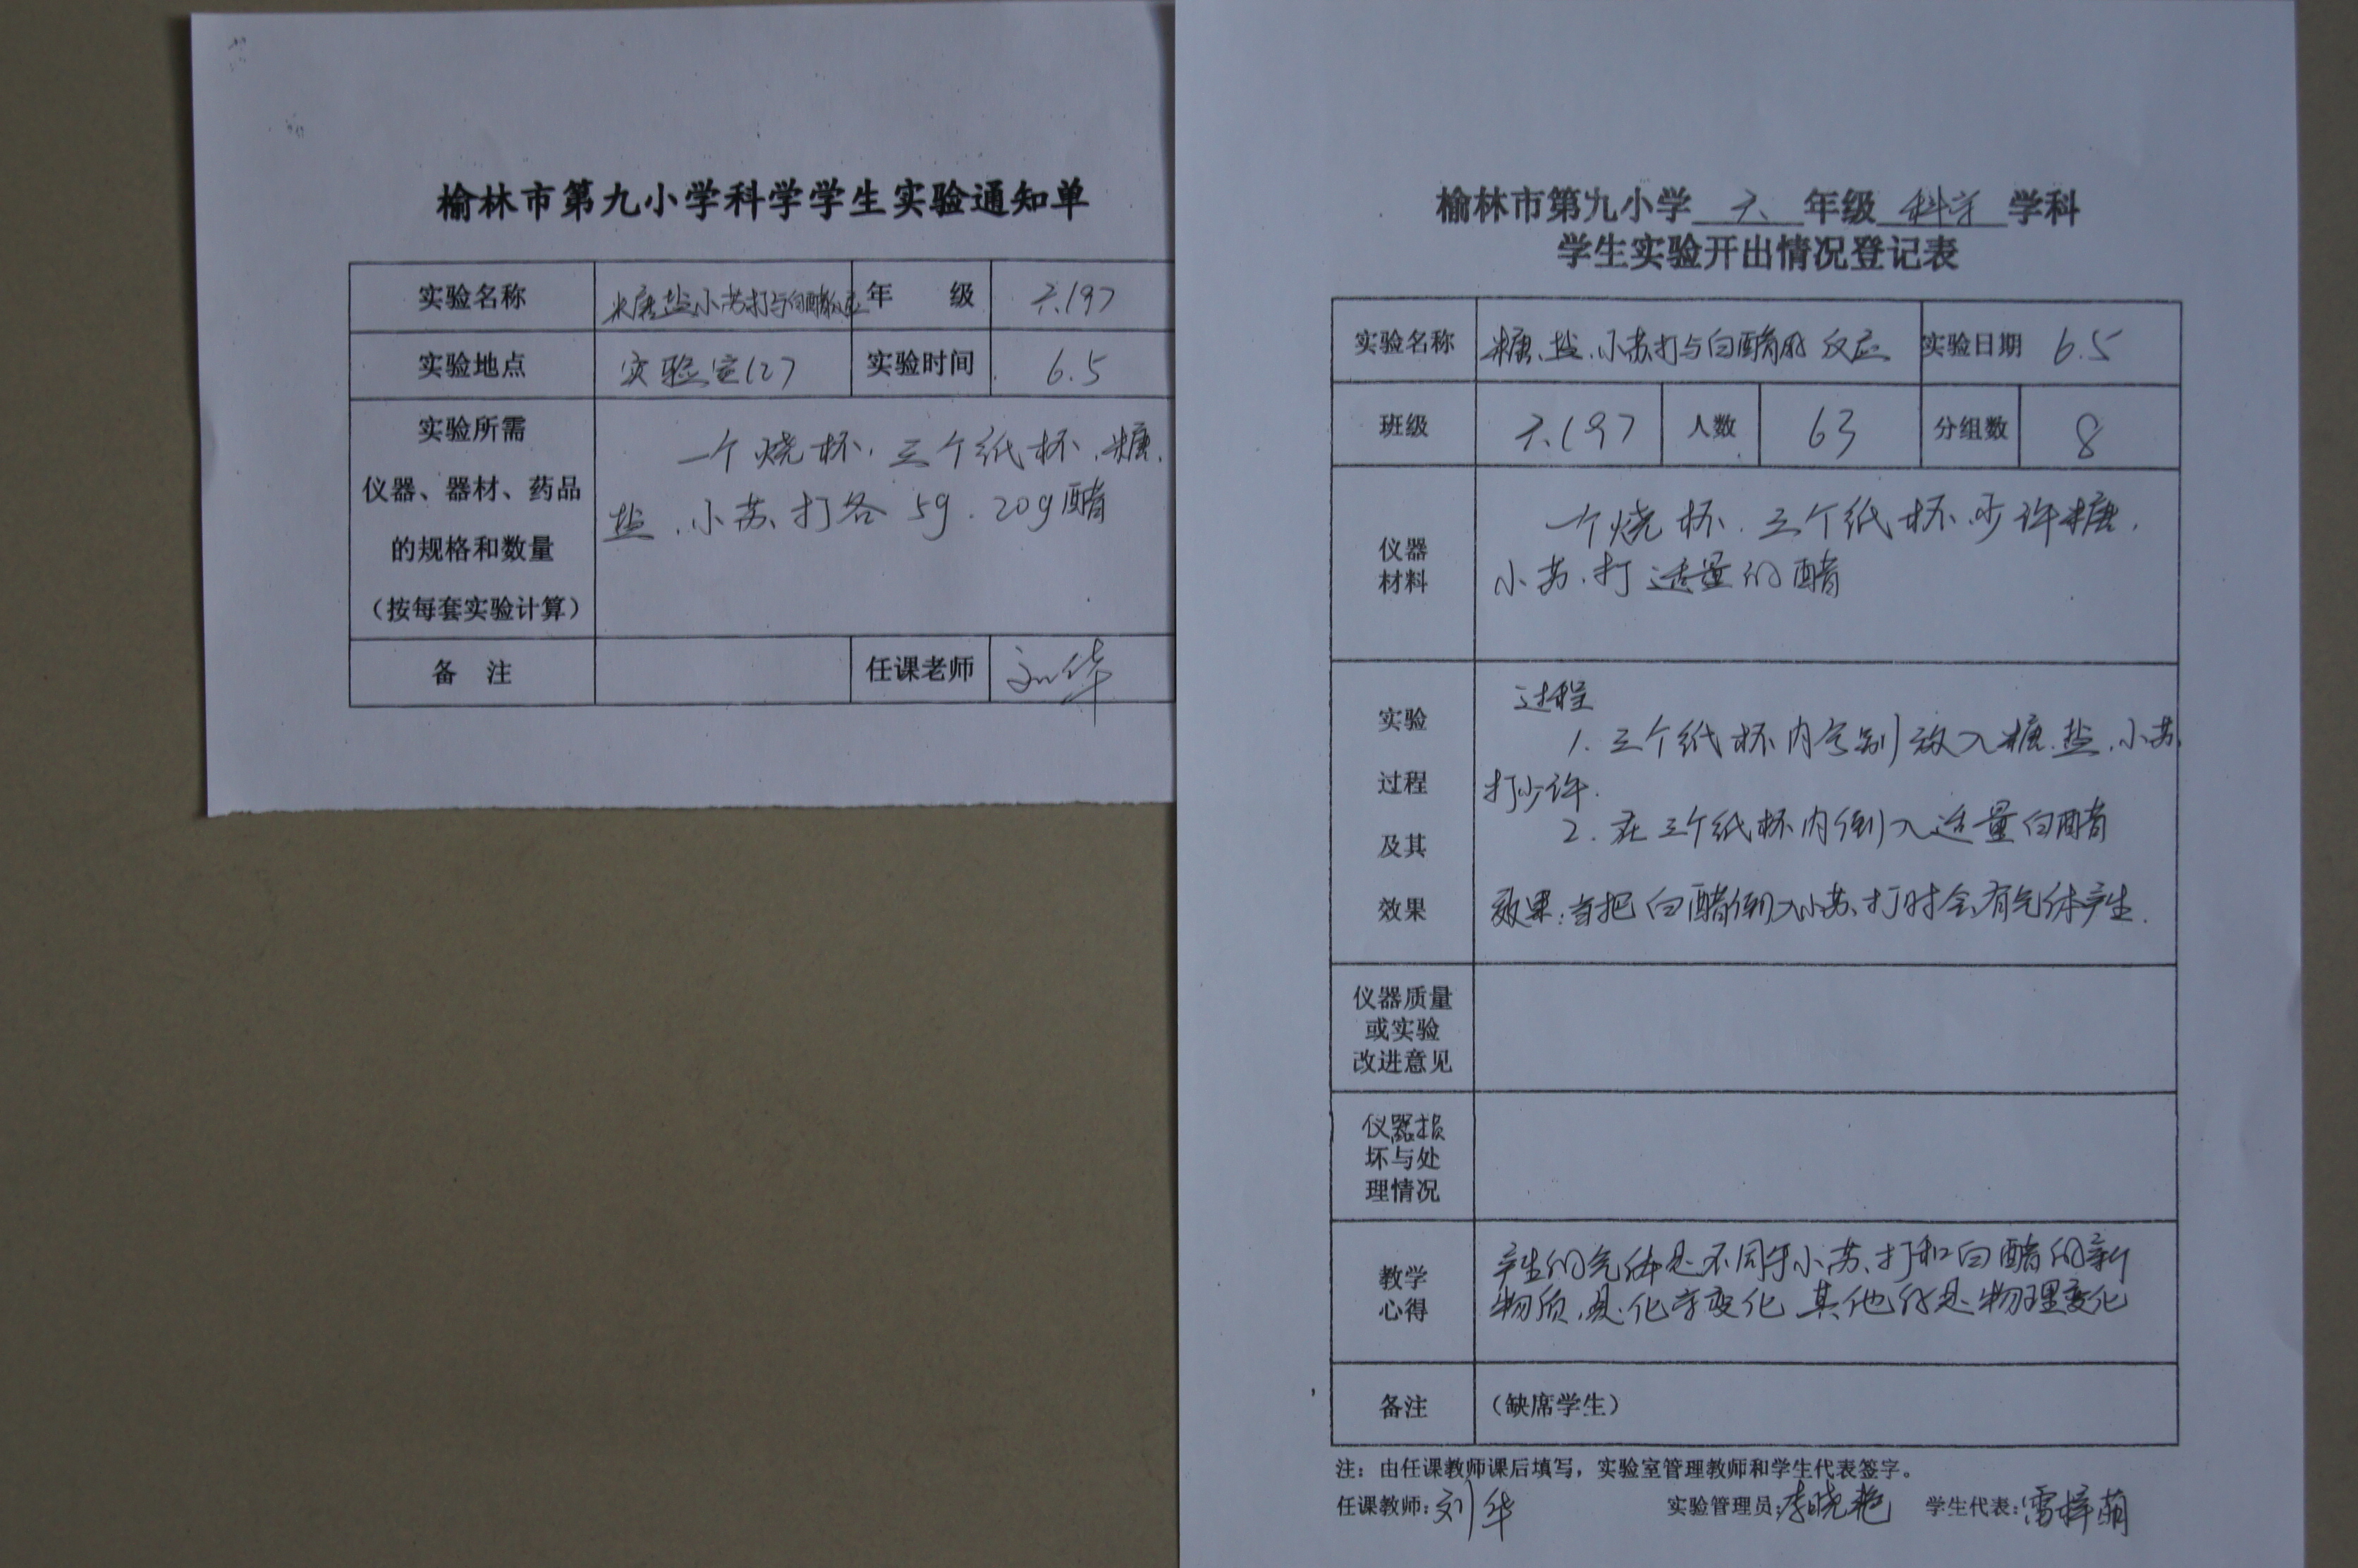 榆林市第九小学科学学生实验通知单
实验名称 糖盐小苏打与白醋反应 年 级 六(9)
实验地点 实验室(2) 实验时间 6.5
实验所需
仪器、器材、药品
的规格和数量
(按每套实验计算)
一个烧杯.三个纸杯.糖.
盐.小苏打各5g.20g醋
备 注 任课老师 刘华
榆林市第九小学 六 年级 科学 学科
学生实验开出情况登记表
实验名称 糖、盐、小苏打与白醋的反应 实验日期 6.5
班级 六(9) 人数 63 分组数 8
仪器
材料
一个烧杯.三个纸杯.少许糖.
小苏打 适量的醋
实验
过程
及其
效果
过程
1.三个纸杯内分别放入糖.盐.小苏
打少许.
2.在三个纸杯内倒入适量白醋
效果:当把白醋倒入小苏打时会有气体产生.
仪器质量
或实验
改进意见
仪器损
坏与处
理情况
教学
心得
产生的气体是不同于小苏打和白醋的新
物质.是化学变化 其他的是物理变化
备注 (缺席学生)
注:由任课教师课后填写,实验室管理教师和学生代表签字。
任课教师:刘华 实验管理员:李晓艳 学生代表:雷梓萌